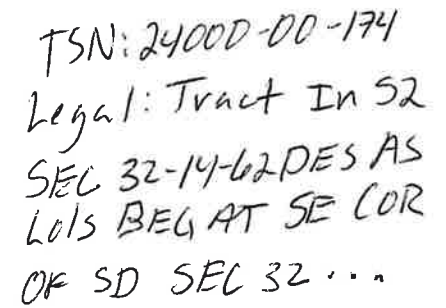 TSN: 24000-00-174
Legal: Tract In S2
SEC 32-14-62 DES AS
Lols BEG AT SE COR
OF SD SEC 32...